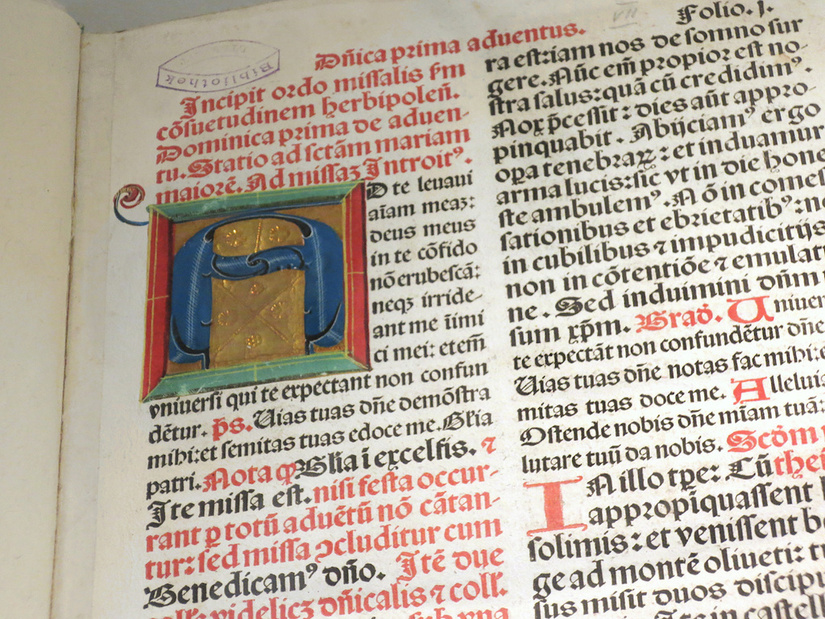 Folio. I.
VII
Bibliothek
Dñica prima aduentus.
Incipit ordo missalis fm
cõsuetudinem herbipoleñ.
Dominica prima de aduen-
tu. Statio ad sctãm mariam
maiorẽ. Ad missaz Introitꝰ.
AD te leuaui
aĩam meaz:
deus meus
in te cõfido
nõ erubescã:
neqz irride-
ant me ĩimi
ci mei: etem̃
vniuersi qui te expectant non confun
dẽtur. p̃s. Uias tuas dñe demõstra
mihi: et semitas tuas edoce me. Gl̃ia
patri. Nota ꝙ Gl̃ia ĩ excelsis. ⁊
Ite missa est. nisi festa occur-
rant ꝑ totũ aduẽtũ nõ cãtan-
tur: sed missa ꝯcluditur cum
Benedicamꝰ dño. Itẽ due
coll̃e videlicz dñicalis ⁊ coll̃.
ra est: iam nos de somno sur
gere. Nũc em̃ propior est no-
stra salus: quã cũ credidimꝰ.
Nox p̃cessit: dies aũt appro-
pinquabit. Abijciamꝰ ergo
oꝑa tenebraꝝ: et induamur
arma lucis: sic vt in die hone
ste ambulemꝰ. Nõ in comes
sationibus et ebrietatibꝰ: no
in cubilibus ⁊ impudicitijs
non in cõtentiõe ⁊ emulat
ne. Sed induimini dñm
sum xp̃m. Grad̃. Uniuer
te expectãt non confundẽtur dñe
Uias tuas dñe notas fac mihi: e
mitas tuas doce me. Alleluia
Ostende nobis dñe mĩam tuã:
lutare tuũ da nobis. Scd̃m
IN illo tp̃e: Cũ
appropĩquassent
solimis: et venissent
ge ad montẽ oliueti: t
sus misit duos discipu
Ite in castell